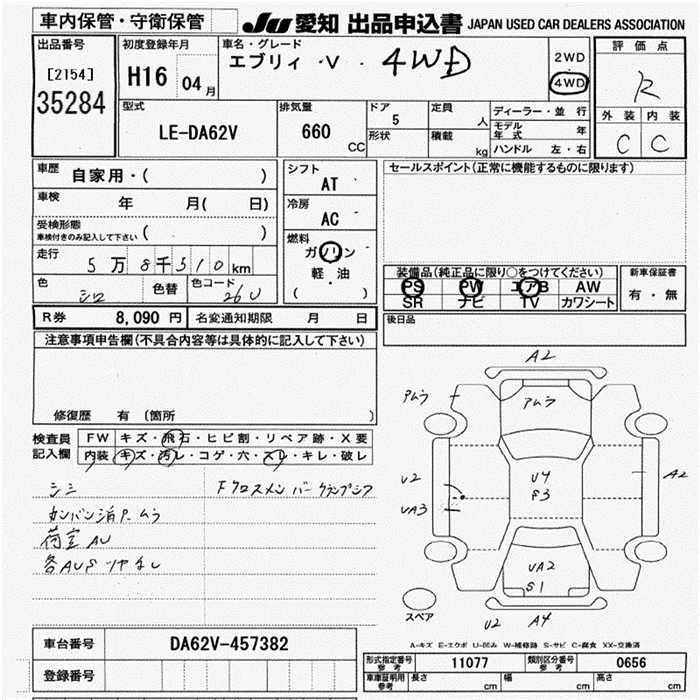 車内保管・守衛保管
JU 愛知 出品申込書 JAPAN USED CAR DEALERS ASSOCIATION
出品番号
[2154]
35284
初度登録年月
H16 04 月
車名・グレード
エブリィ ・V ・ 4WD
2WD
4WD
評価点
R
外装 内装
C C
型式
LE-DA62V
排気量
660 CC
ドア
5
形状
定員
人
積載
kg
ディーラー・並行
モデル年式 年
ハンドル 左・右
車歴
自家用・( )
車検 年 月( 日)
受検形態
車検付きのみ記入して下さい ( )
走行
5万8千510km
色
シロ
色替
色コード
26U
シフト
AT
冷房
AC
燃料
ガソリン
軽・油
( )
セールスポイント(正常に機能するものに限ります)
装備品(純正品に限り○をつけてください)
PS PW エアB AW
SR ナビ TV カワシート
新車保証書
有・無
後日品
R券 8,090 円 名変通知期限 月 日
注意事項申告欄(不具合内容等は具体的に記入して下さい)
修復歴 有 〔箇所 〕
検査員記入欄
FW キズ・飛石・ヒビ割・リペア跡・X要
内装 キズ・汚レ・コゲ・穴・スレ・キレ・破レ
シミ
カンバン消P.ムラ
荷室AU
Fクロスメンバークランプシフ
A2
Pムラ
Pムラ
U2
UA3
U4
S3
A2
UA2
S1
U2
A4
スペア
A-キズ E-エクボ U-凹み W-補修跡 S-サビ C-腐食 XX-交換済
車台番号 DA62V-457382
登録番号
形式指定番号 参考 11077 類別区分番号 参考 0656
車庫証明用 参考 長さ cm 幅 cm 高さ cm